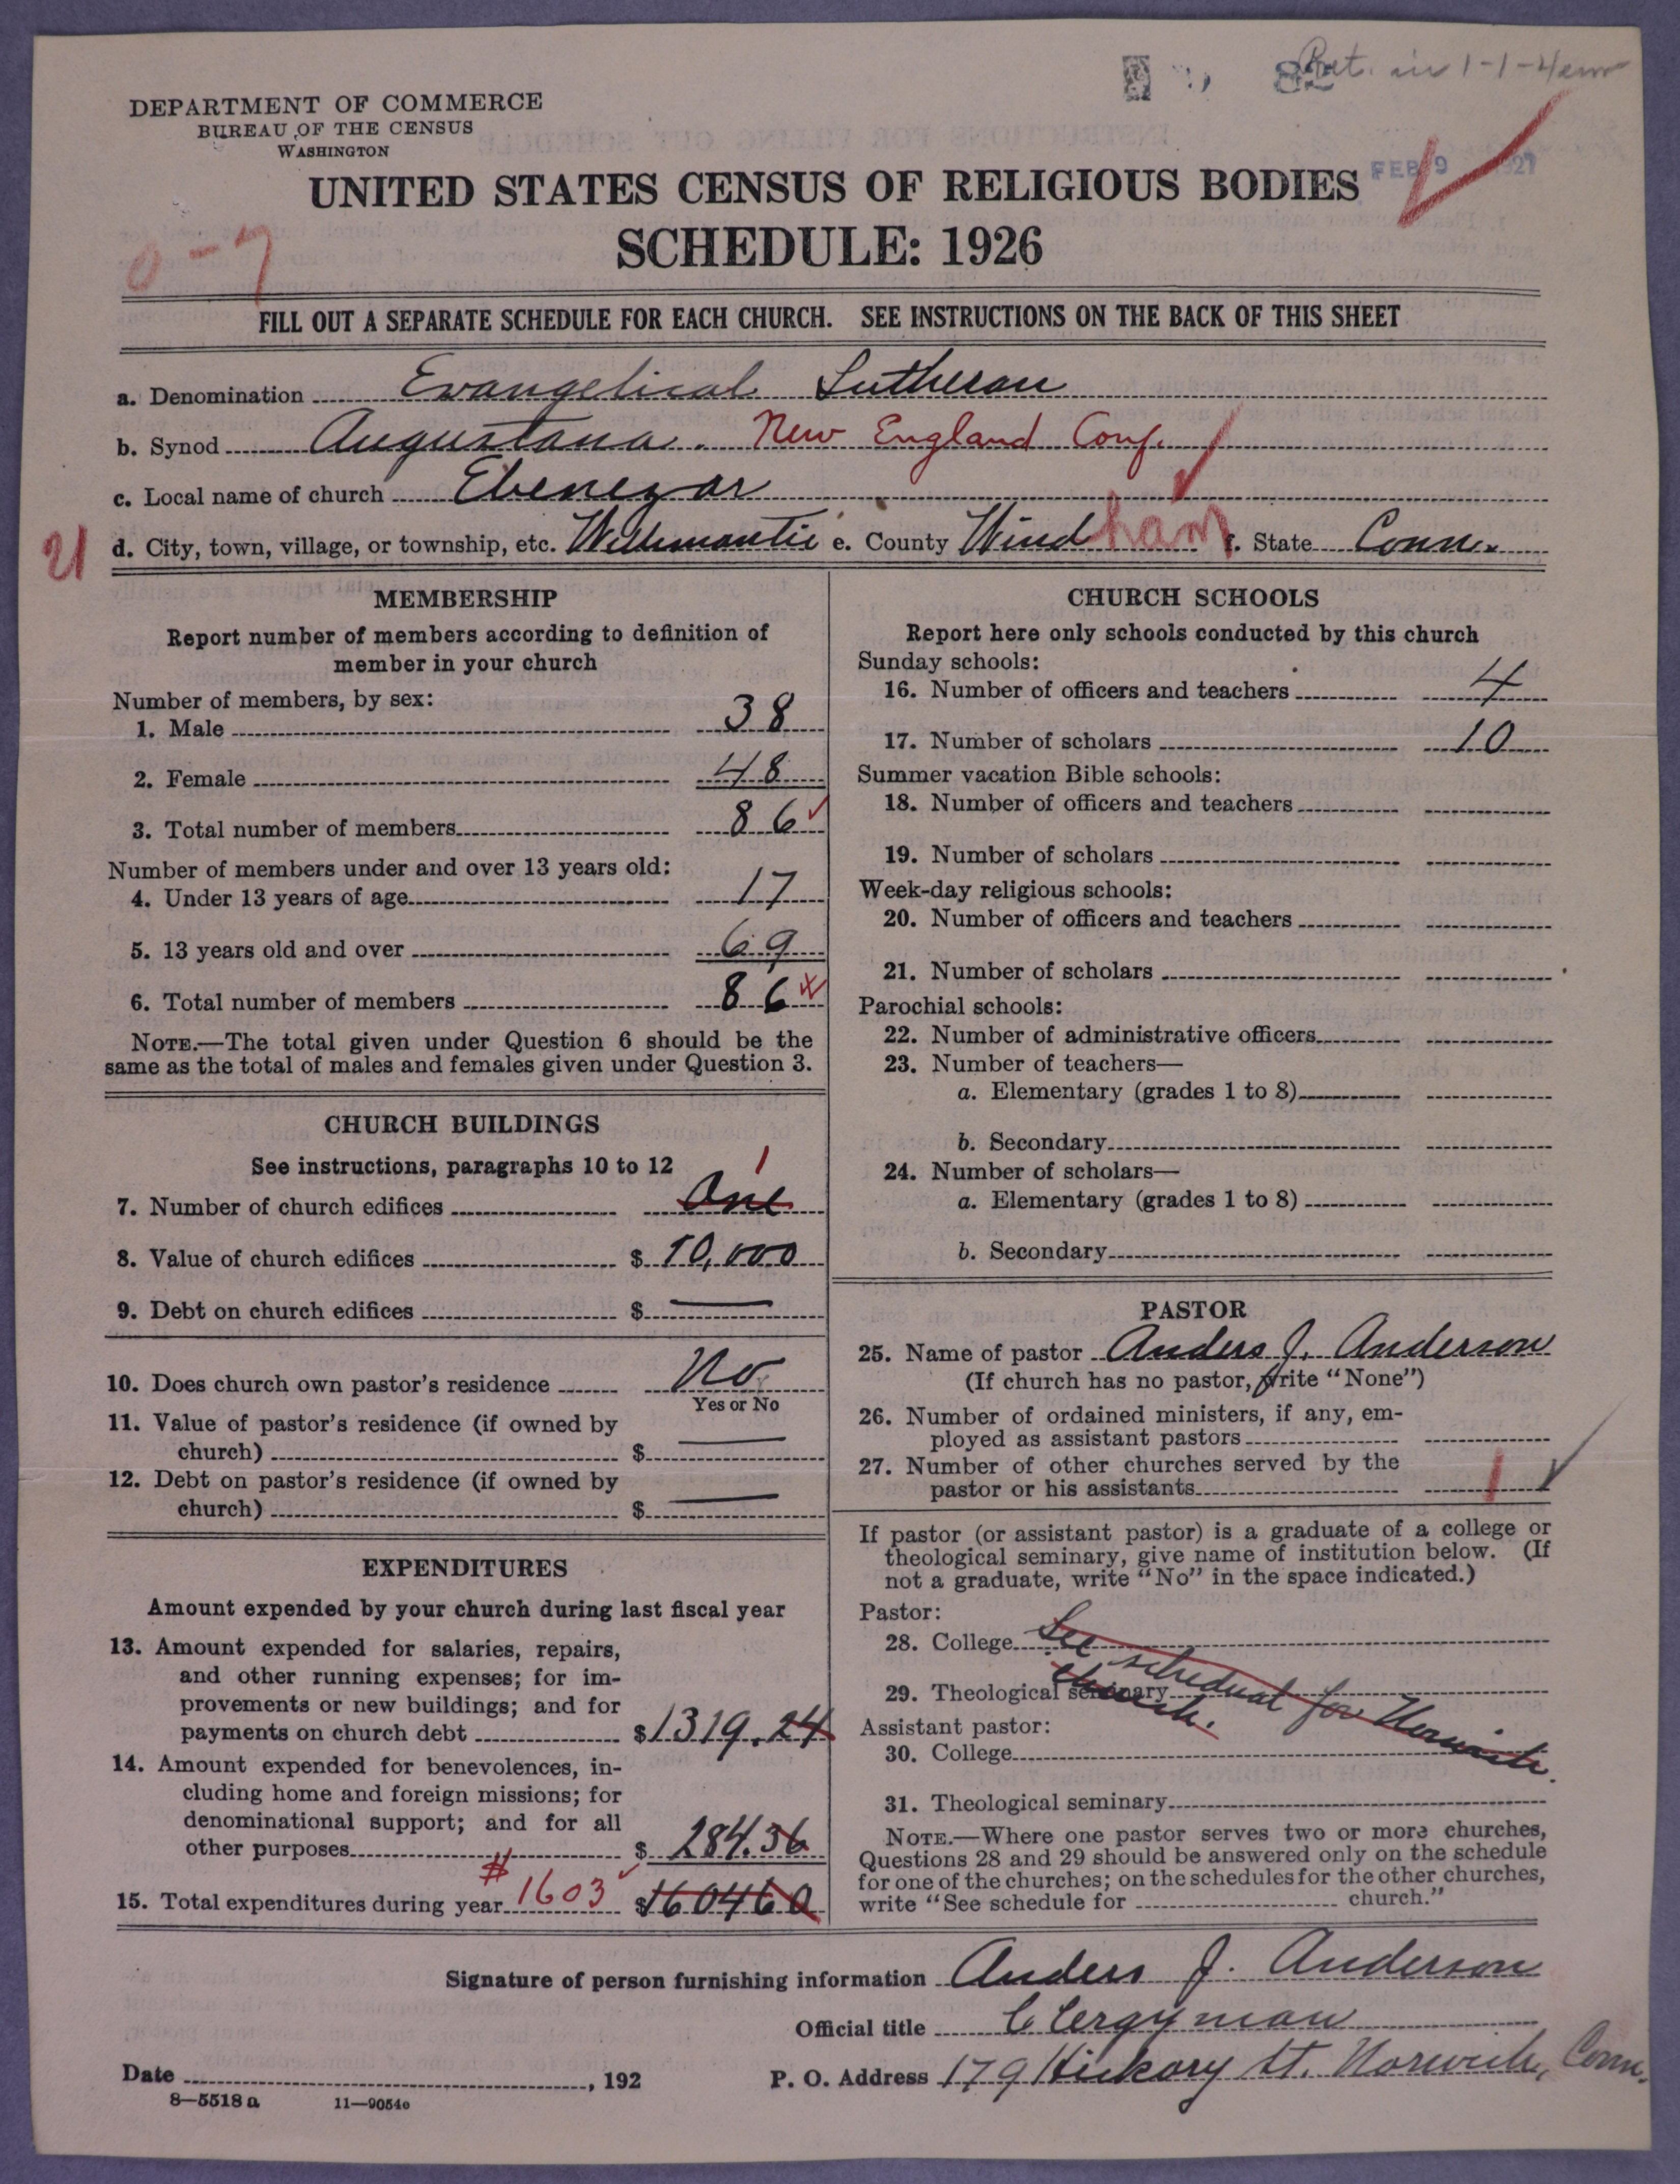 Ret. in 1-1-4em
82
DEPARTMENT OF COMMERCE
BUREAU OF THE CENSUS
WASHINGTON
FEB 9 1927
UNITED STATES CENSUS OF RELIGIOUS BODIES
SCHEDULE: 1926
0-7
FILL OUT A SEPARATE SCHEDULE FOR EACH CHURCH. SEE INSTRUCTIONS ON THE BACK OF THIS SHEET
a. Denomination Evangelical Lutheran
b. Synod Augustana. New England Conf.
c. Local name of church Ebenezar
21 d. City, town, village, or township, etc. Willimantic e. County Windham f. State Conn.
MEMBERSHIP
Report number of members according to definition of
member in your church
Number of members, by sex:
1. Male 38
2. Female 48
3. Total number of members 86
Number of members under and over 13 years old:
4. Under 13 years of age 17
5. 13 years old and over 69
6. Total number of members 86
NOTE.—The total given under Question 6 should be the
same as the total of males and females given under Question 3.
CHURCH BUILDINGS
See instructions, paragraphs 10 to 12
1
7. Number of church edifices One
8. Value of church edifices $ 10,000
9. Debt on church edifices $ —
10. Does church own pastor's residence No
Yes or No
11. Value of pastor's residence (if owned by
church) $ —
12. Debt on pastor's residence (if owned by
church) $ —
EXPENDITURES
Amount expended by your church during last fiscal year
13. Amount expended for salaries, repairs,
and other running expenses; for im-
provements or new buildings; and for
payments on church debt $ 1319.24
14. Amount expended for benevolences, in-
cluding home and foreign missions; for
denominational support; and for all
other purposes $ 284.36
15. Total expenditures during year $1603 $160460
CHURCH SCHOOLS
Report here only schools conducted by this church
Sunday schools:
16. Number of officers and teachers 4
17. Number of scholars 10
Summer vacation Bible schools:
18. Number of officers and teachers
19. Number of scholars
Week-day religious schools:
20. Number of officers and teachers
21. Number of scholars
Parochial schools:
22. Number of administrative officers
23. Number of teachers—
a. Elementary (grades 1 to 8)
b. Secondary
24. Number of scholars—
a. Elementary (grades 1 to 8)
b. Secondary
PASTOR
25. Name of pastor Anders J. Anderson
(If church has no pastor, write "None")
26. Number of ordained ministers, if any, em-
ployed as assistant pastors
27. Number of other churches served by the
pastor or his assistants 1
If pastor (or assistant pastor) is a graduate of a college or
theological seminary, give name of institution below. (If
not a graduate, write "No" in the space indicated.)
Pastor:
28. College
See schedual for Norwich
church.
29. Theological seminary
Assistant pastor:
30. College
31. Theological seminary
NOTE.—Where one pastor serves two or more churches,
Questions 28 and 29 should be answered only on the schedule
for one of the churches; on the schedules for the other churches,
write "See schedule for church."
Signature of person furnishing information Anders J. Anderson
Official title Clergyman
Date , 192
P. O. Address 179 Hickory St. Norwich, Conn.
8—5518 a 11—9054c